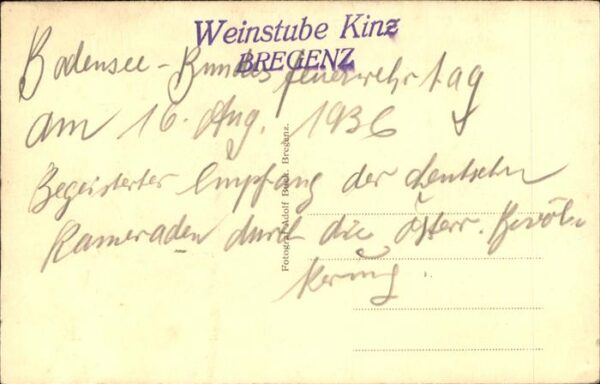 Weinstube Kinz
BREGENZ
Bodensee-Bundesfeuerwehrtag
am 16. Aug. 1936
Begeisterter Empfang der deutschen
Kameraden durch die Österr. Bevöl-
kerung.
Fotograf Adolf Buck, Bregenz.